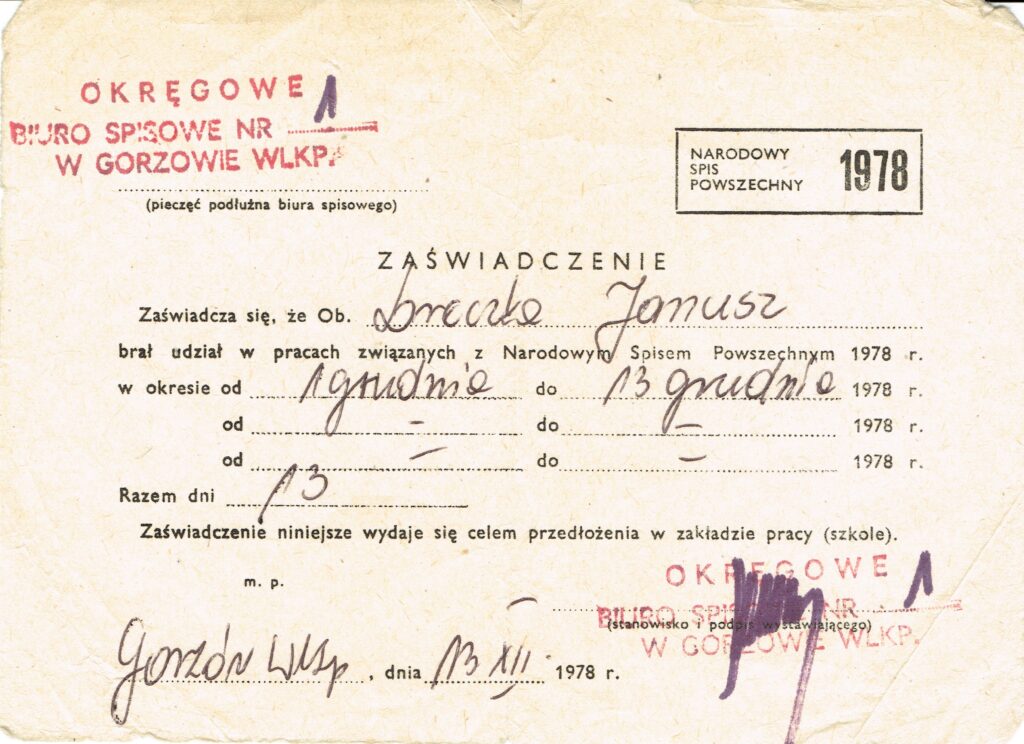 OKRĘGOWE
BIURO SPISOWE NR 1
W GORZOWIE WLKP.
(pieczęć podłużna biura spisowego)
NARODOWY
SPIS
POWSZECHNY
1978
ZAŚWIADCZENIE
Zaświadcza się, że Ob. Janusz
brał udział w pracach związanych z Narodowym Spisem Powszechnym 1978 r.
w okresie od 1 grudnia do 13 grudnia 1978 r.
od – do – 1978 r.
od – do – 1978 r.
Razem dni 13
Zaświadczenie niniejsze wydaje się celem przedłożenia w zakładzie pracy (szkole).
m. p.
OKRĘGOWE
BIURO SPISOWE NR 1
(stanowisko i podpis wystawiającego)
W GORZOWIE WLKP.
Gorzów Wlkp, dnia 13 XII 1978 r.